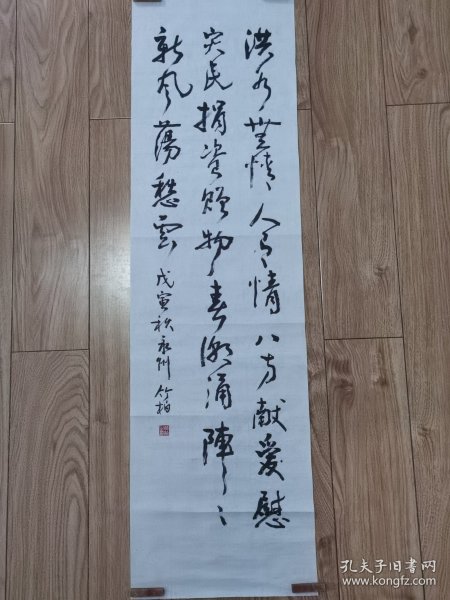 洪水無情人有情八方献愛慰
灾民捐资赠物春潮涌陣々
新风蕩愁雲
戊寅秋永州竹柏
孔夫子旧书网
www.kongfz.com